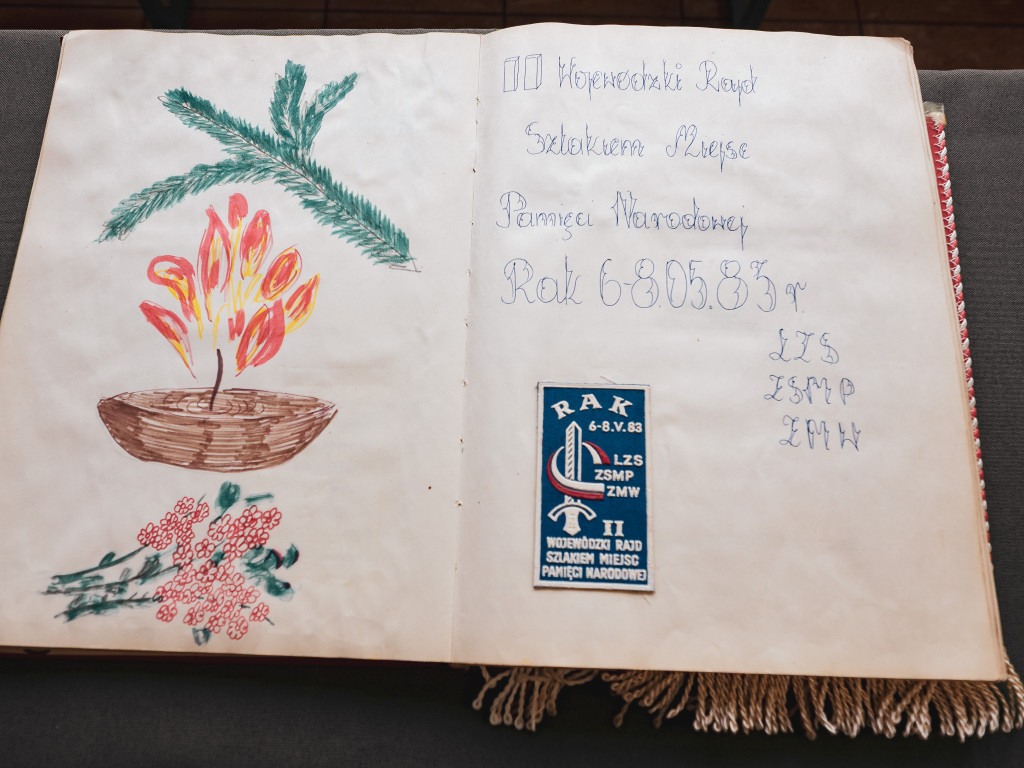 II Wojewódzki Rajd
Szlakiem Miejsc
Pamięci Narodowej
Rak 6-8.05.83 r.
LZS
ZSMP
ZMW
RAK
6-8.V.83
LZS
ZSMP
ZMW
II
WOJEWÓDZKI RAJD
SZLAKIEM MIEJSC
PAMIĘCI NARODOWEJ